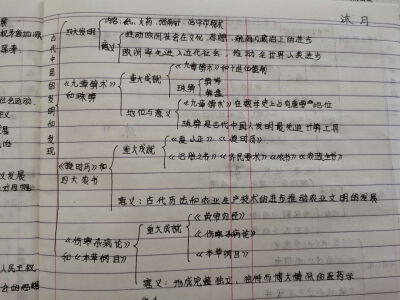 冰月
古代中国的发明和发现
四大发明
内容：造纸、火药、指南针、活字印刷术
意义
推动欧洲社会在文化、思想、航海及政治上的进步
欧洲率先进入近代社会，推动全世界人类进步
《九章算术》和珠算
重大成就
《九章算术》和十进位值制
珠算
地位与意义
《九章算术》在数学史上占有重要地位
珠算是古代中国人发明最先进计算工具
《授时历》和四大农书
重大成就
《夏小正》《授时历》
《氾胜之书》《齐民要术》《农书》《农政全书》
意义：古代历法和农业生产技术的进步推动农业文明的发展
《伤寒杂病论》和《本草纲目》
重大成就
《黄帝内经》
《伤寒杂病论》
《本草纲目》
意义：形成完整独立、独特而博大精深的医药学